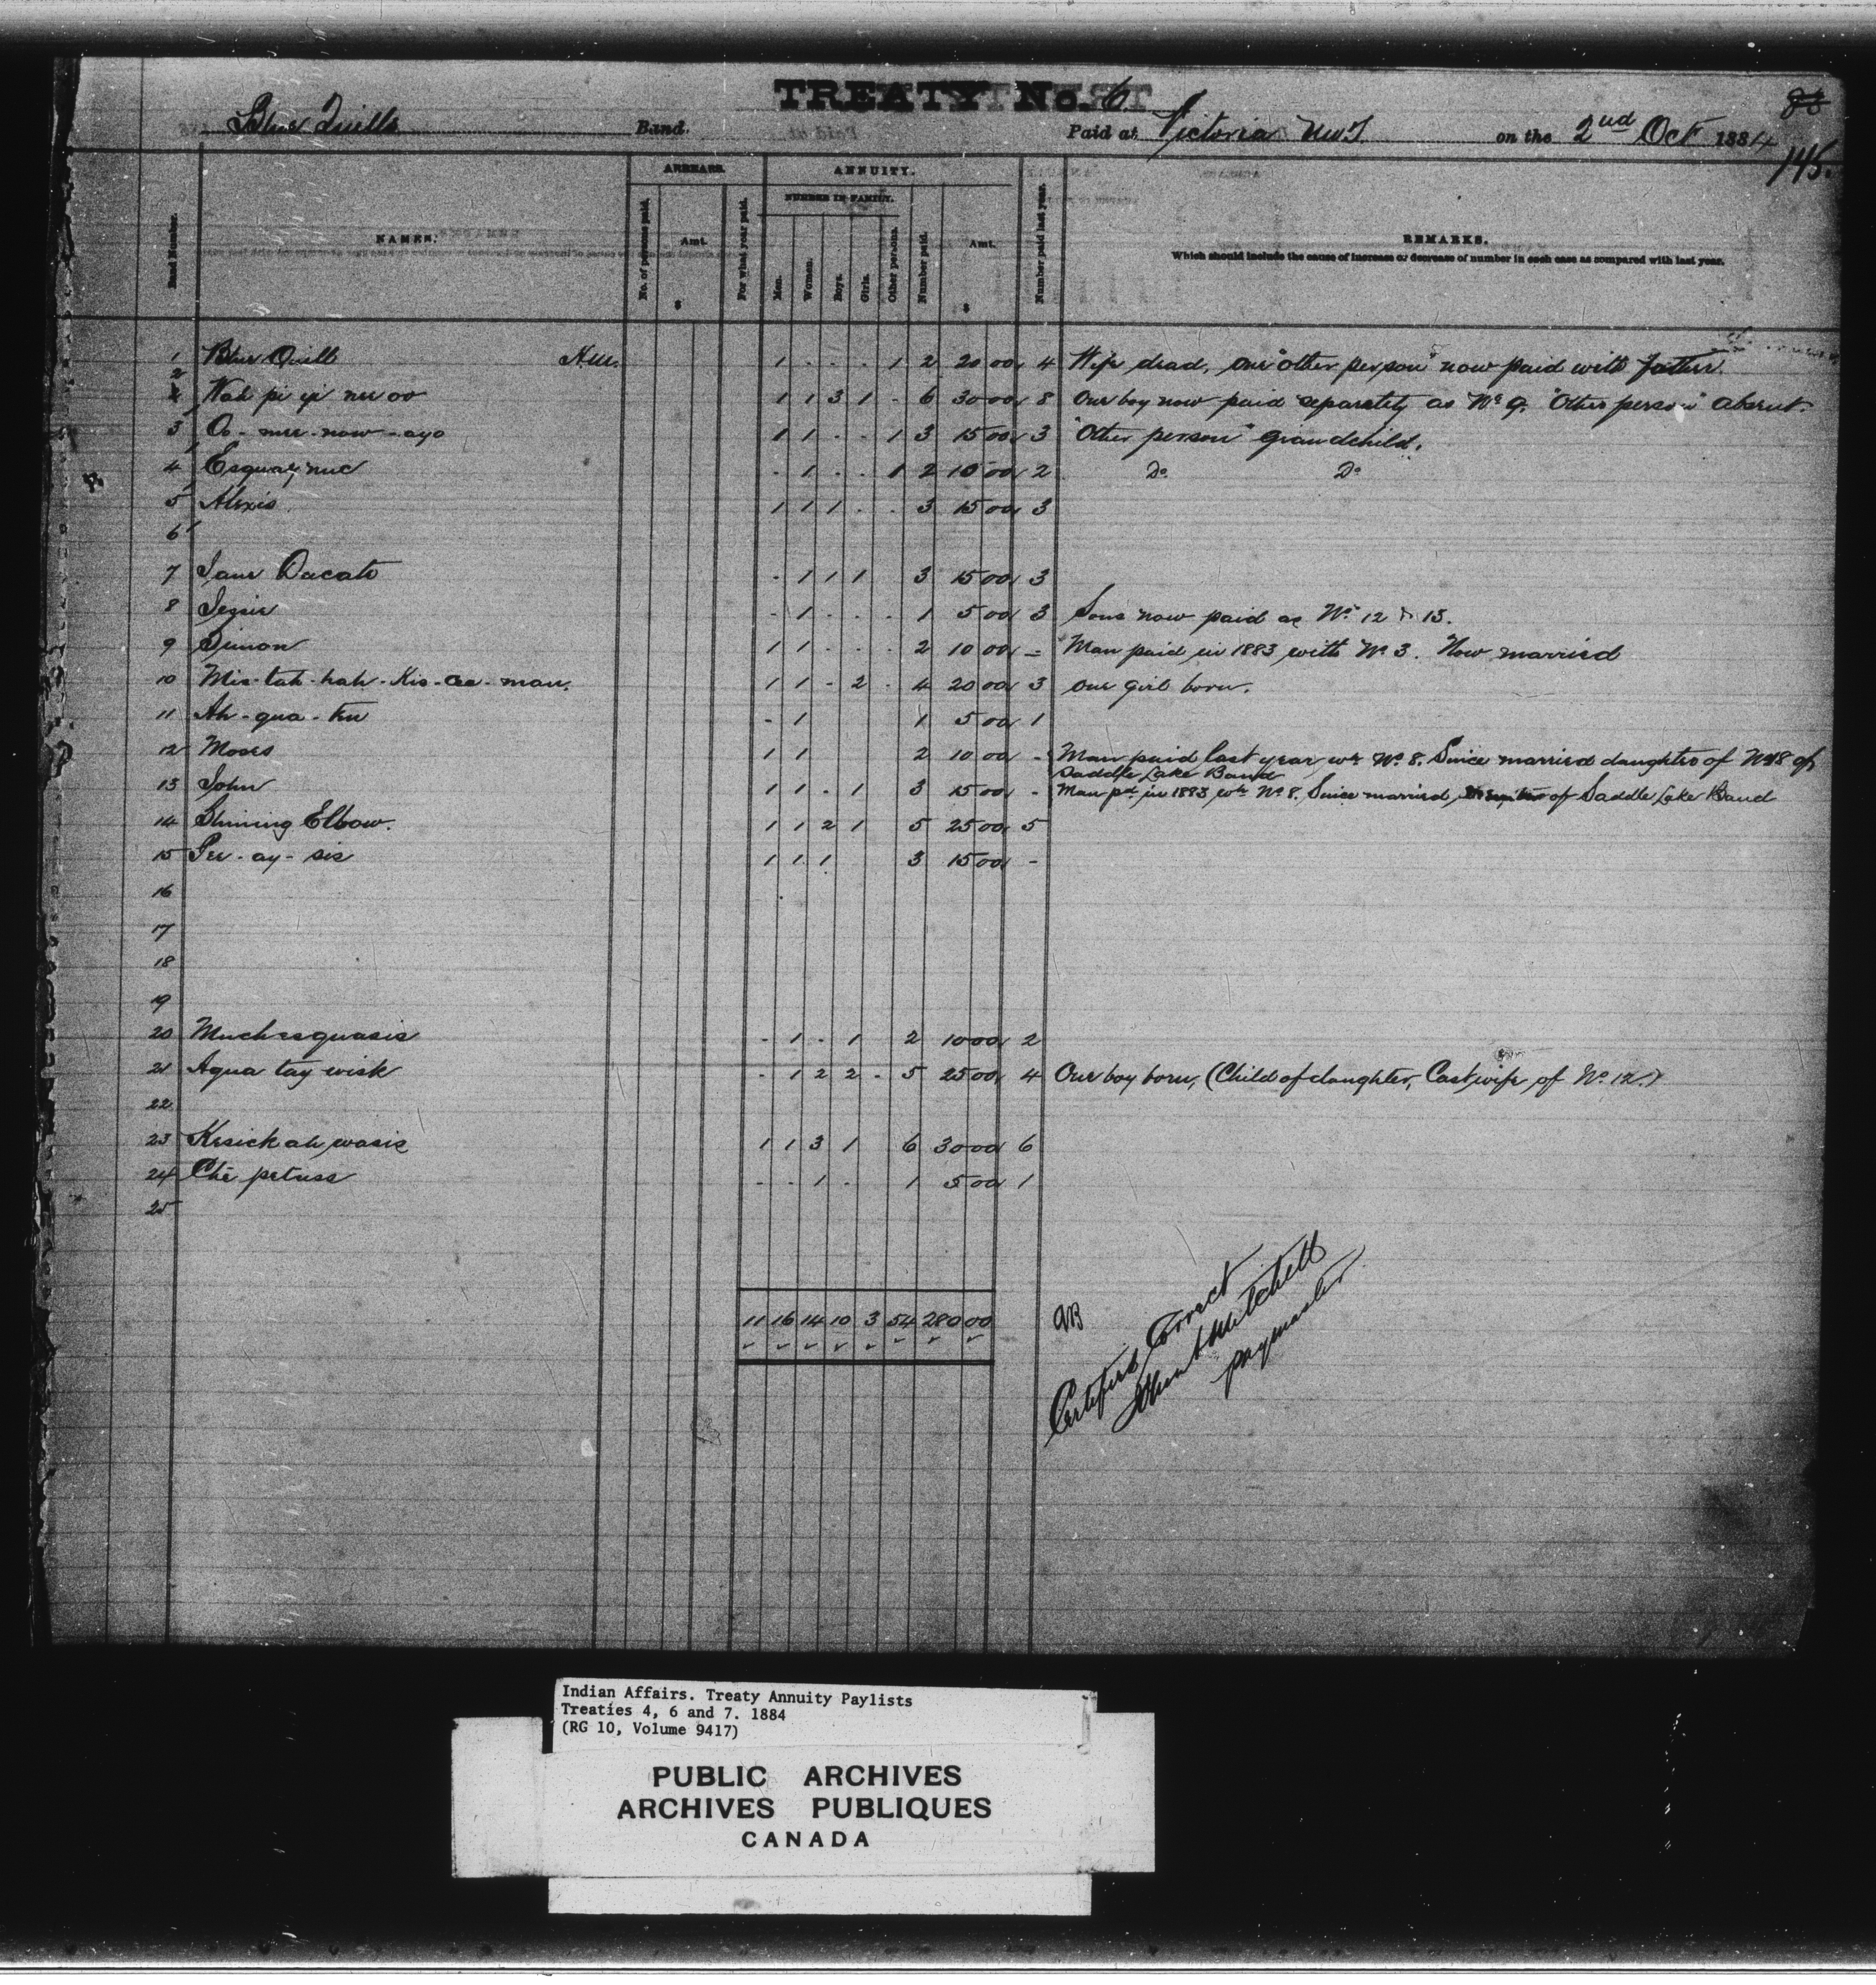 TREATY No. 6 83
Blue Quills Band. Paid at Victoria NWT. on the 2nd Oct 1884
145.
ARREARS. ANNUITY.
NUMBER IN FAMILY.
Band Number. NAMES. No. of persons paid. Amt. $ For what year paid. Men. Women. Boys. Girls. Other persons. Number paid. Amt. $ Number paid last year. REMARKS.
Which should include the cause of increase or decrease of number in each case as compared with last year.
1 Blue Quill 1 . . . 1 2 20 00 4 Wife dead, one "other person" now paid with father.
2 Nah pi yi nee oo 1 1 3 1 - 6 30 00 8 One boy now paid separately as No 9. "Other person" absent.
3 Oo - mee - now - ayo 1 1 - - 1 3 15 00 3 "Other person" grandchild.
4 Esquay nuc - 1 . . 1 2 10 00 2 Do Do
5 Alexis 1 1 1 . . 3 15 00 3
6
7 Jane Dacato - 1 1 1 3 15 00 3
8 - 1 . . . 1 5 00 3 Sons now paid as No 12 & 13.
9 Simon 1 1 . . . 2 10 00 - Man paid in 1883 with No 3. Now married
10 Mis-tah-hah-Kis-ae-man. 1 1 - 2 - 4 20 00 3 One girl born.
11 Ah-qua-tu - 1 1 5 00 1
12 Moses 1 1 2 10 00 - Man paid last year wh No 8. Since married daughter of No 18 of
Saddle Lake Band
13 John 1 1 - 1 3 15 00 - Man pd in 1883 wh No 8. Since married, of Saddle Lake Band
14 Shining Elbow. 1 1 2 1 5 25 00 5
15 Pee-ay-sis 1 1 1 3 15 00 -
16
17
18
19
20 Muchesquasis - 1 - 1 2 10 00 2
21 Aqua tay wisk - 1 2 2 - 5 25 00 4 One boy born, (Child of daughter, Cast wife of No 12.)
22
23 Kesick ah wasis 1 1 3 1 6 30 00 6
24 Che petuss - - 1 - 1 5 00 1
25
11 16 14 10 3 54 280 00
Certified Correct
Mitchell
paymaster
Indian Affairs. Treaty Annuity Paylists
Treaties 4, 6 and 7. 1884
(RG 10, Volume 9417)
PUBLIC ARCHIVES
ARCHIVES PUBLIQUES
CANADA